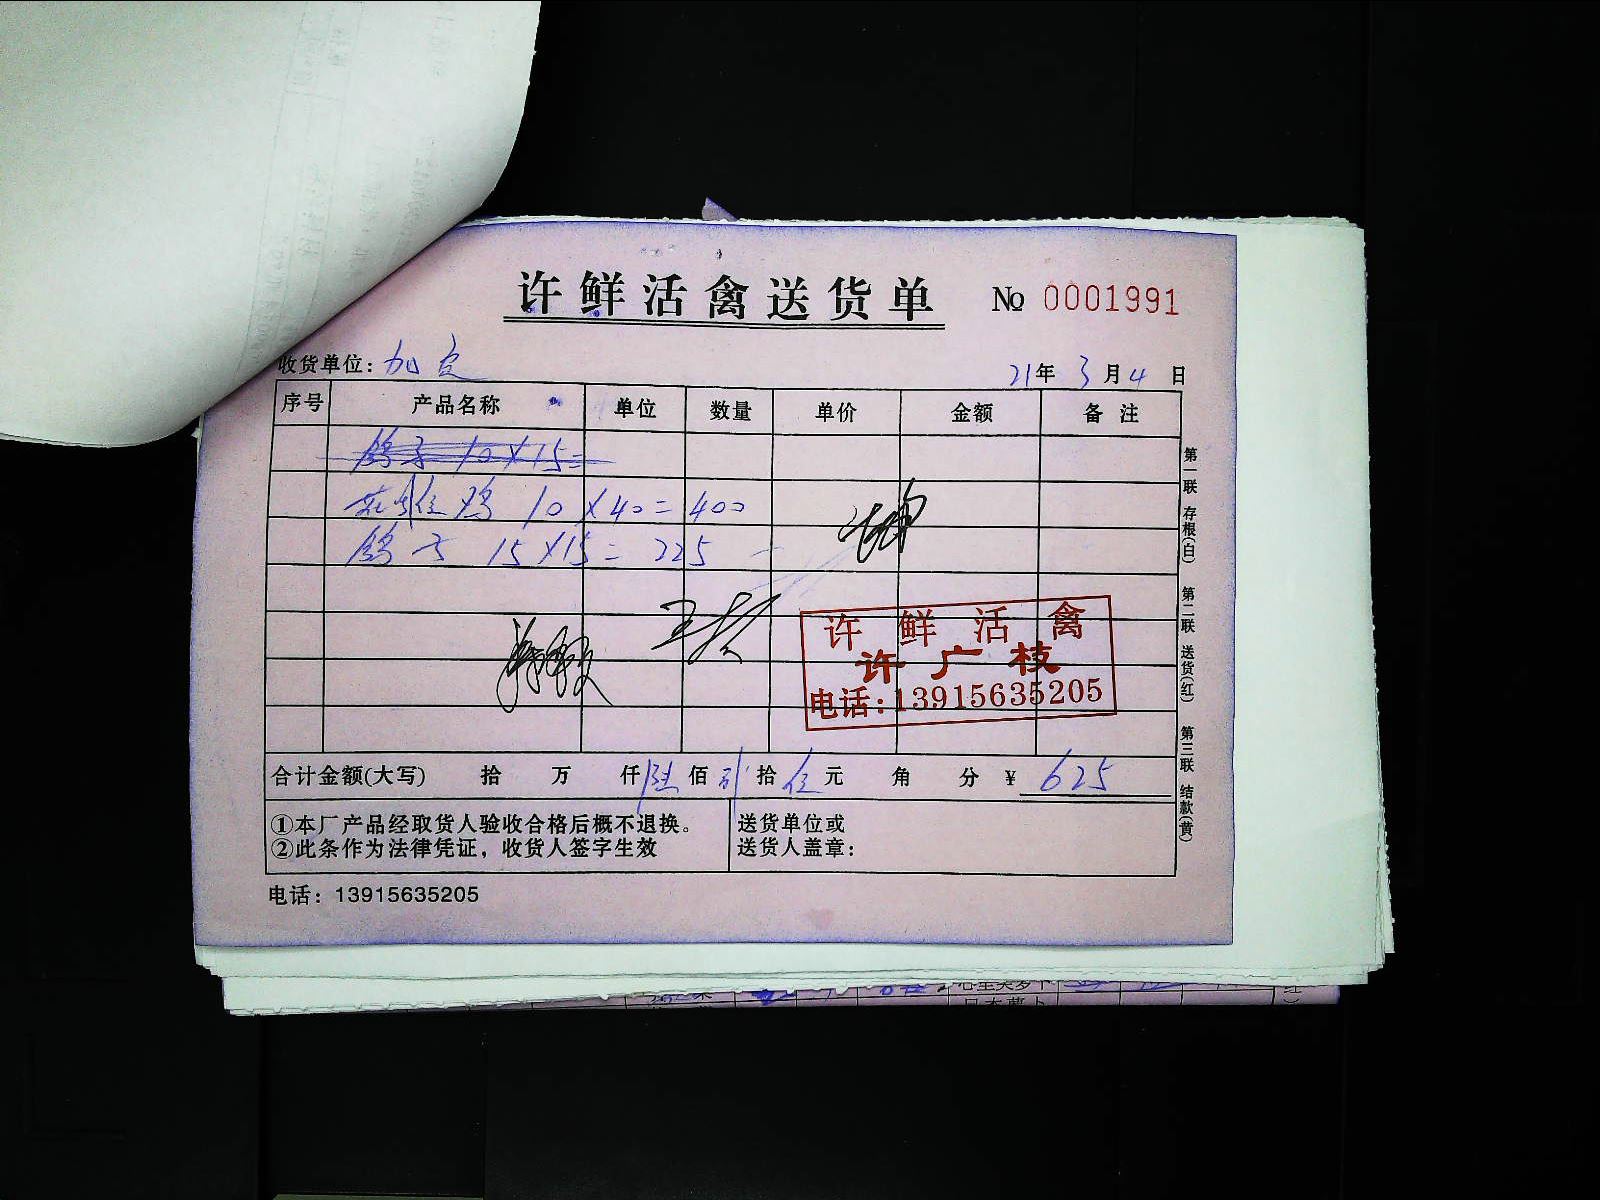 许鲜活禽送货单 No 0001991
收货单位: 加定 21年 3月4日
序号 产品名称 单位 数量 单价 金额 备注
鸽子 10×15=
鸡 10×40=400
鸽子 15×15=225
许鲜活禽
许广枝
电话:13915635205
合计金额(大写) 拾 万 仟 陆佰 贰拾 伍元 角 分 ¥ 625
①本厂产品经取货人验收合格后概不退换。
②此条作为法律凭证，收货人签字生效
送货单位或
送货人盖章:
电话: 13915635205
第一联 存根(白) 第二联 送货(红) 第三联 结款(黄)